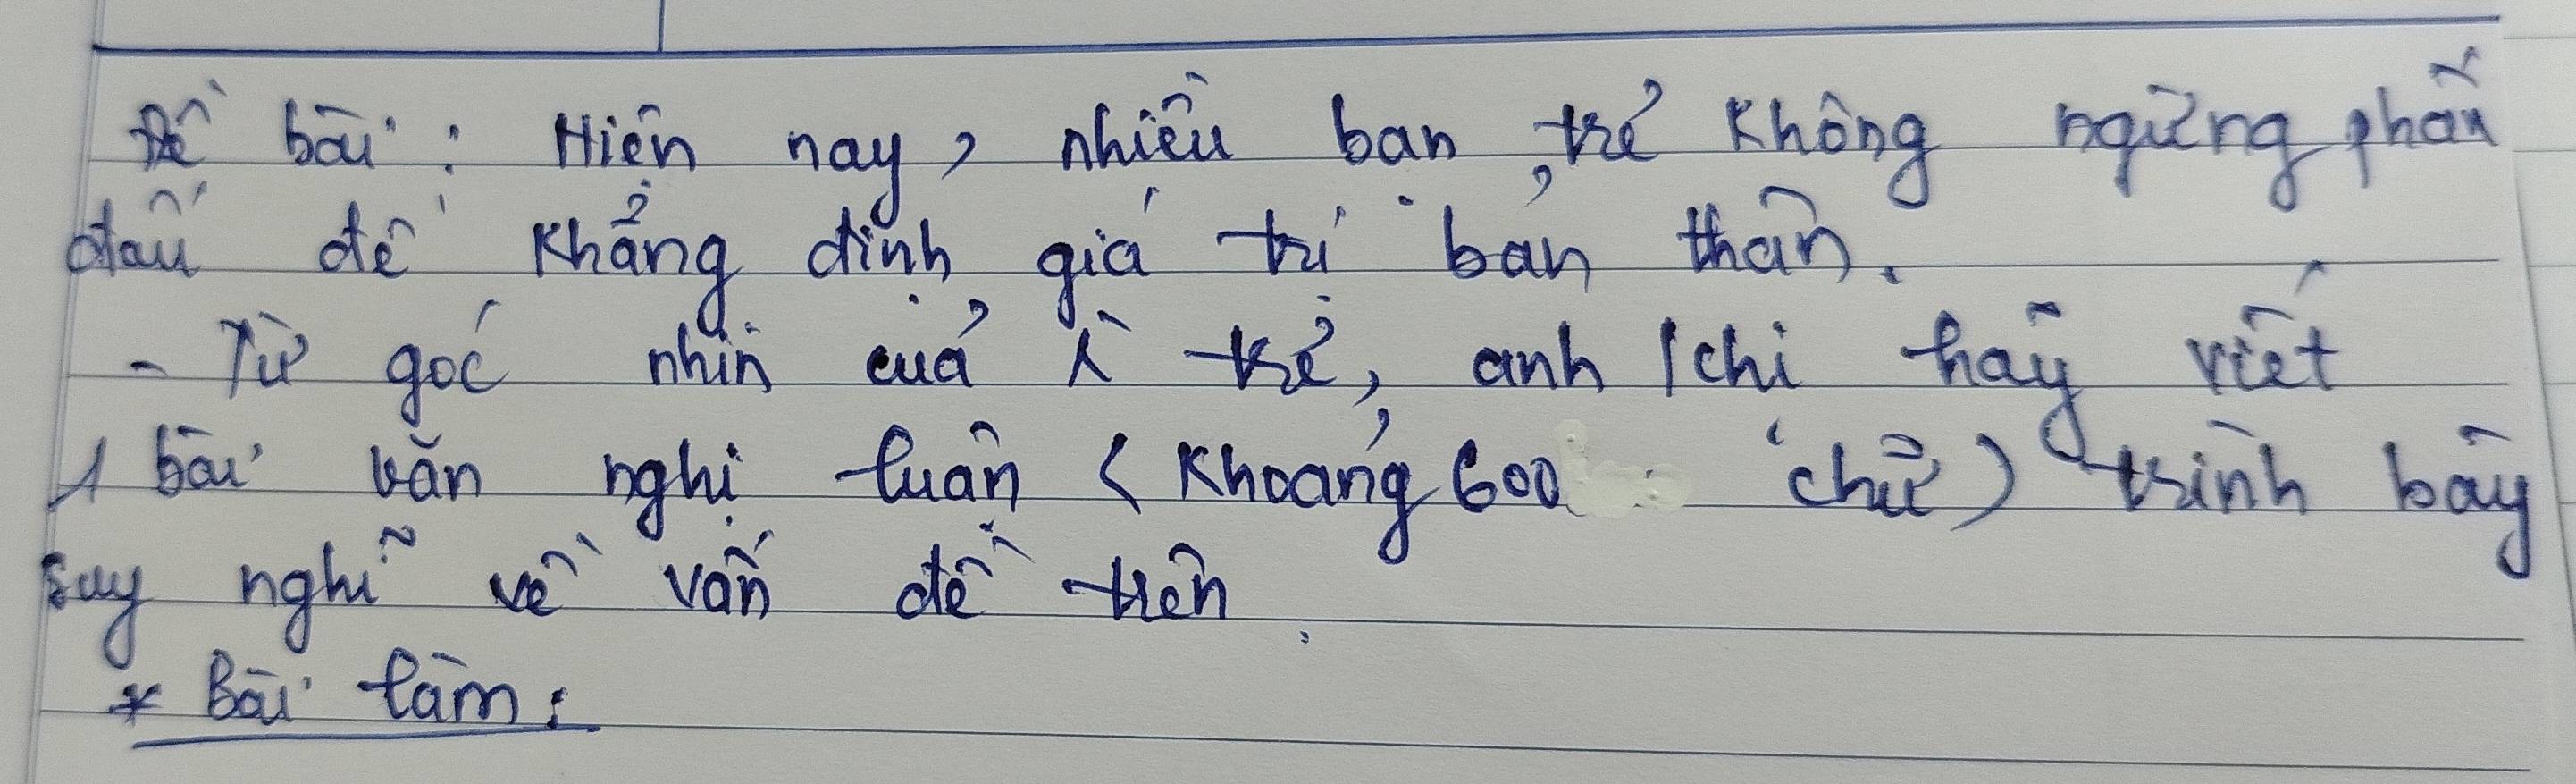 Đề bài: Hiện nay, nhiều bạn trẻ không ngừng phấn
đấu để khẳng định giá trị bản thân.
- Từ góc nhìn của ng trẻ, anh/chị hãy viết
1 bài văn nghị luận (khoảng 600 chữ) trình bày
suy nghĩ về vấn đề trên.
* Bài làm: